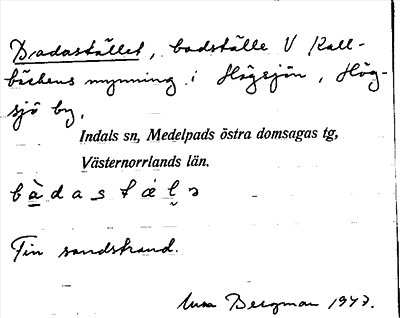 Badastället, badställe V Kall-
bäckens mynning i Högsjön, Hög-
sjö by.
Indals sn, Medelpads östra domsagas tg,
Västernorrlands län.
Fin sandstrand.
Bergman 1943.